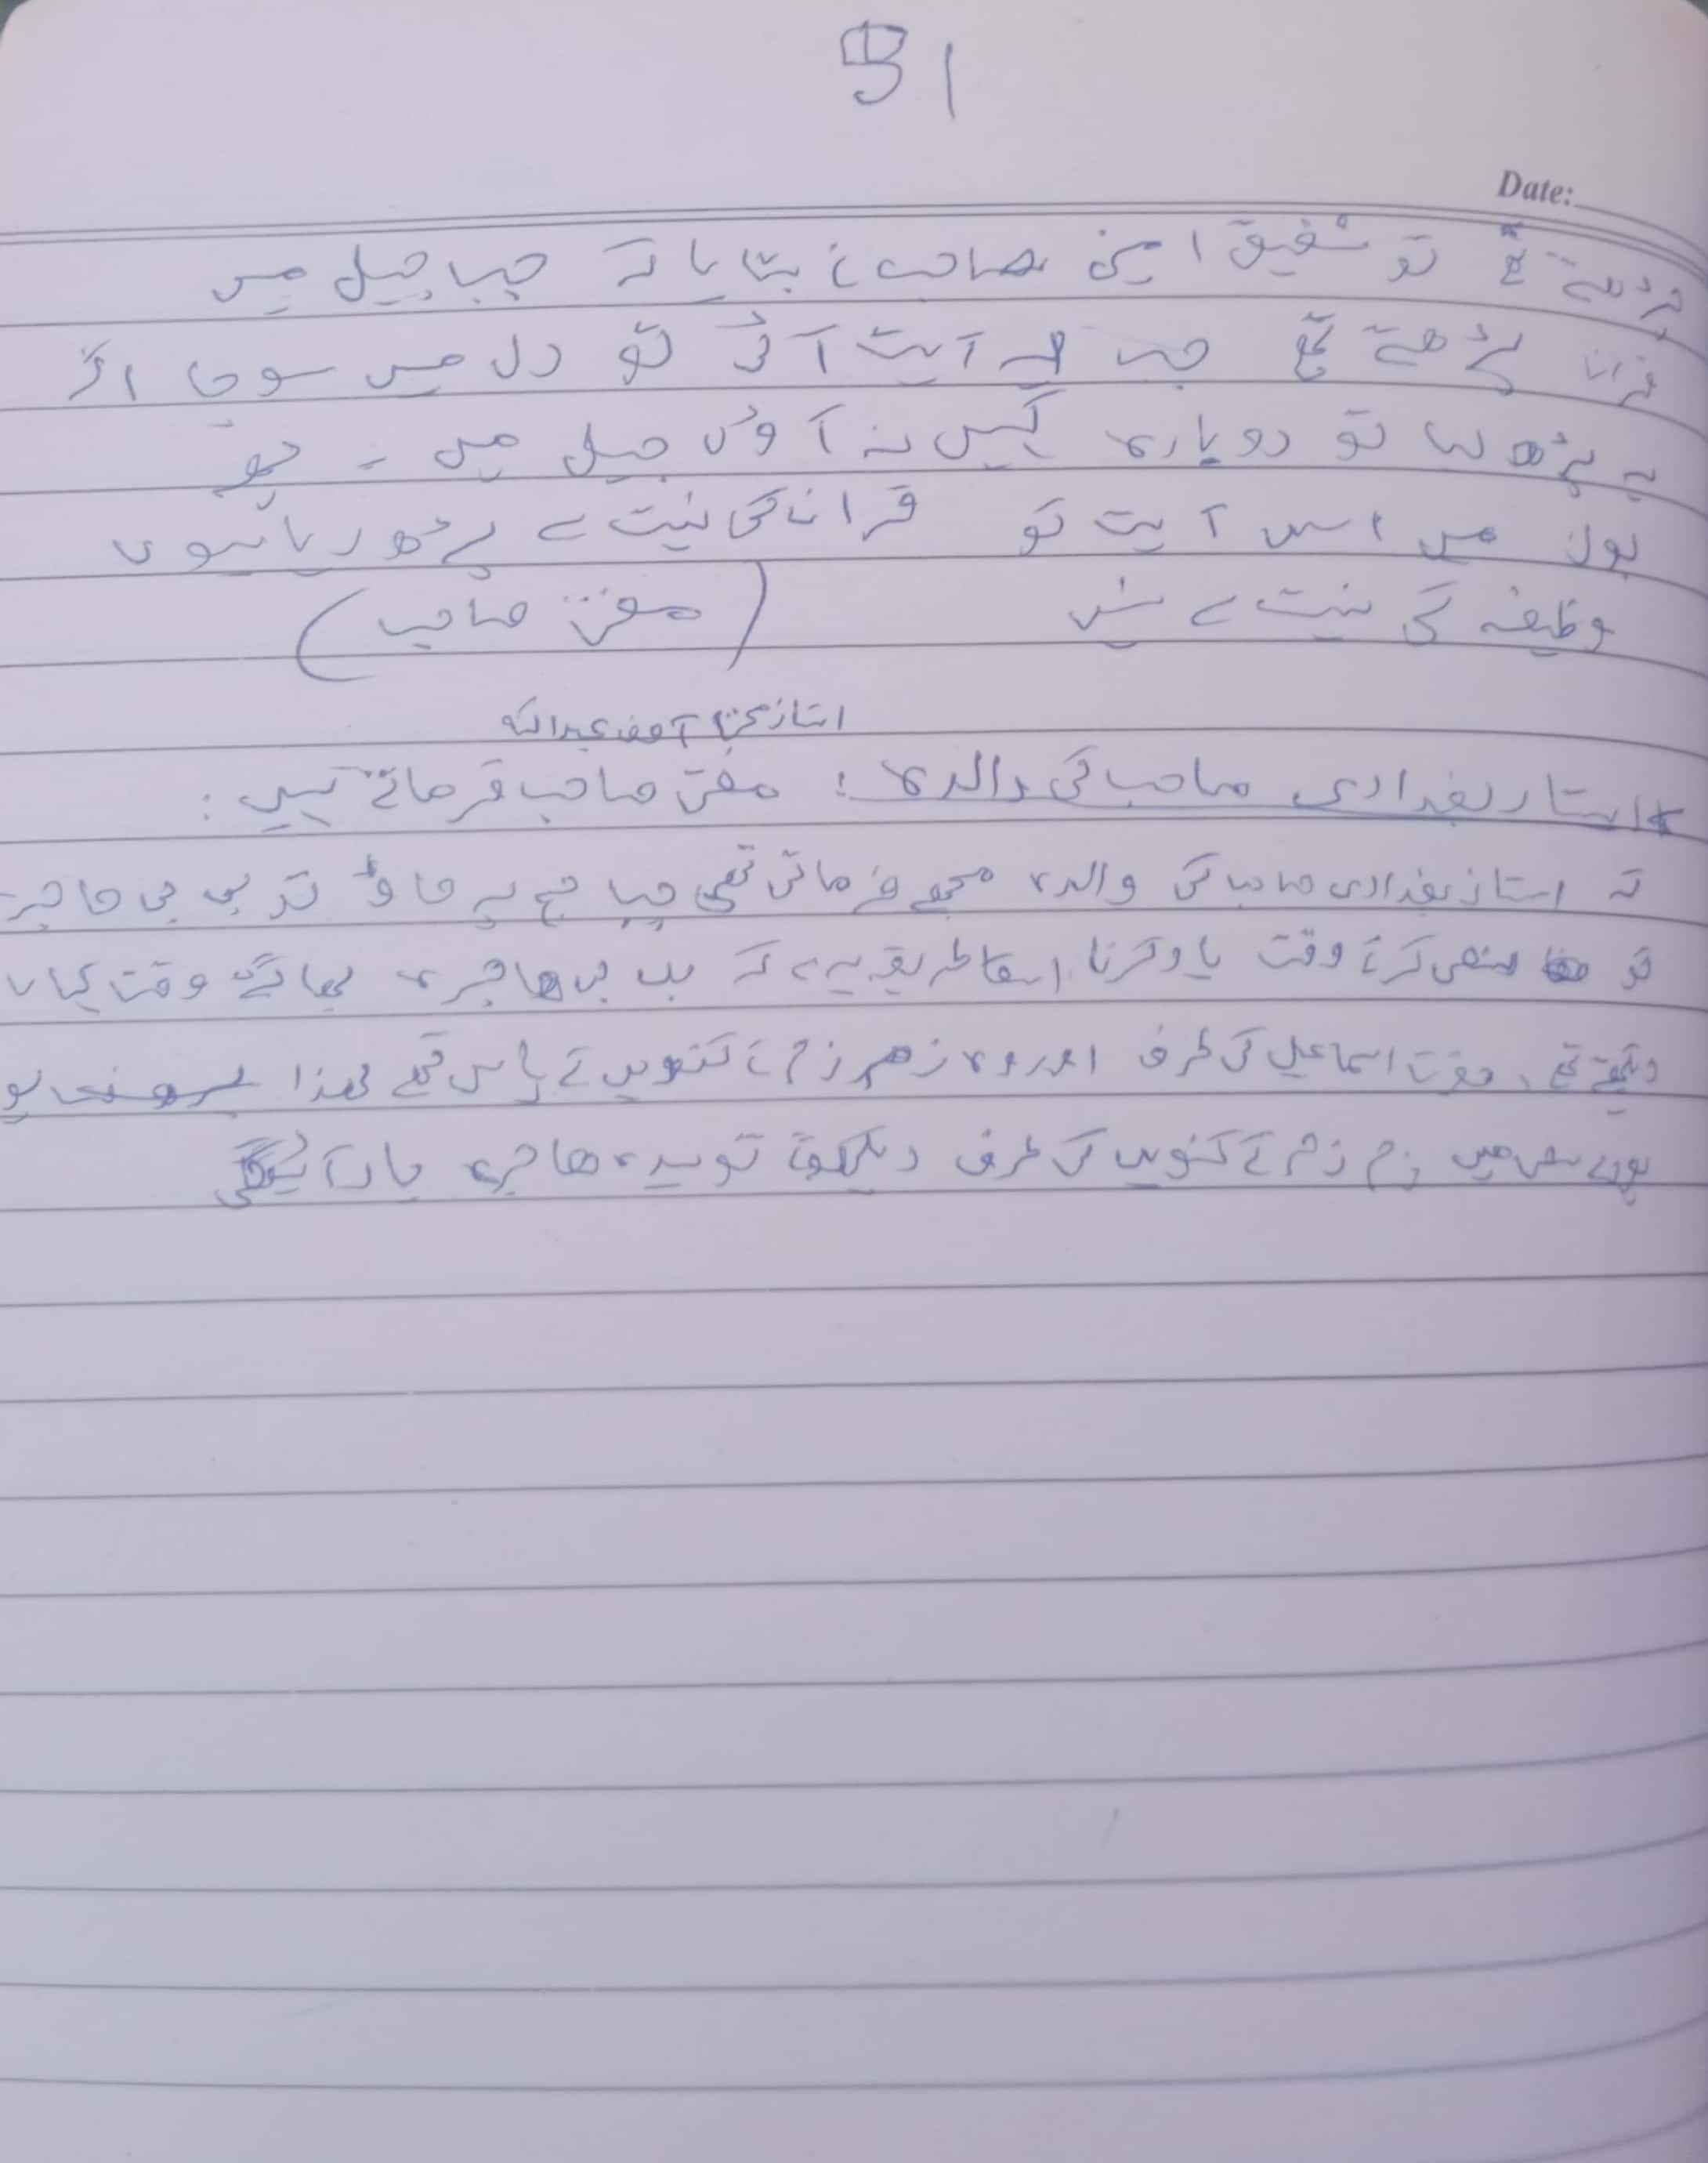 51
Date:
پڑھتے تھے تو شفیق امینی صاحب نے بتایا کہ جب جیل میں
قران پڑھتے تھے جب یہ آیت آئی تو دل میں سوچا اگر
یہ پڑھ لیا تو دوبارہ کہیں نہ آوں جیل میں ۔ پھر
بولا میں اس آیت کو قران کی نیت سے پڑھ رہا ہوں
وظیفہ کی نیت سے نہیں (مفتی صاحب)
استاذ آصف عبداللہ
استاد بغدادی صاحب کی والدہ : مفتی صاحب فرماتے ہیں :
کہ استاذ بغدادی صاحب کی والدہ مجھے فرماتی تھی جب حج پہ جاؤ تو بی بی حاجرہ
کو سعی کرتے وقت یاد کرنا اسکا طریقہ یہ ہے کہ بی بی ھاجرہ بھاگتے وقت کہاں
دیکھتے تھے ، حضرت اسماعیل کی طرف اور وہ زم زم کے کنویں کے پاس تھے لھذا
پورے سعی میں زم زم کے کنویں کی طرف دیکھو تو سیدہ ھاجرہ یاد آئیگی